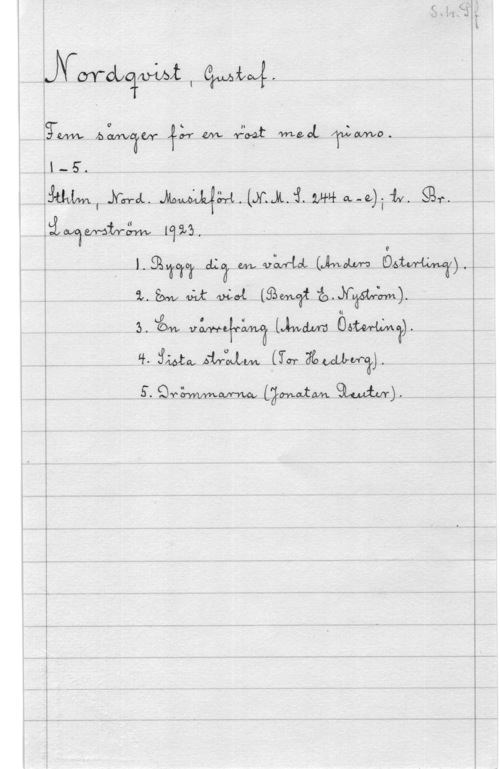 S.h.Pf
Nordqvist, Gustaf.
Fem sånger för en röst med piano.
1-5.
Sthlm, Nord. Musikförl. (N.M.S. 244 a-e); tr. Br.
Lagerström 1923.
1. Bygg dig en värld (Anders Österling).
2. En vit viol (Bengt E. Nyström).
3. En vårrefräng (Anders Österling).
4. Sista strålen (Tor Hedberg).
5. Drömmarna (Jonatan Reuter).